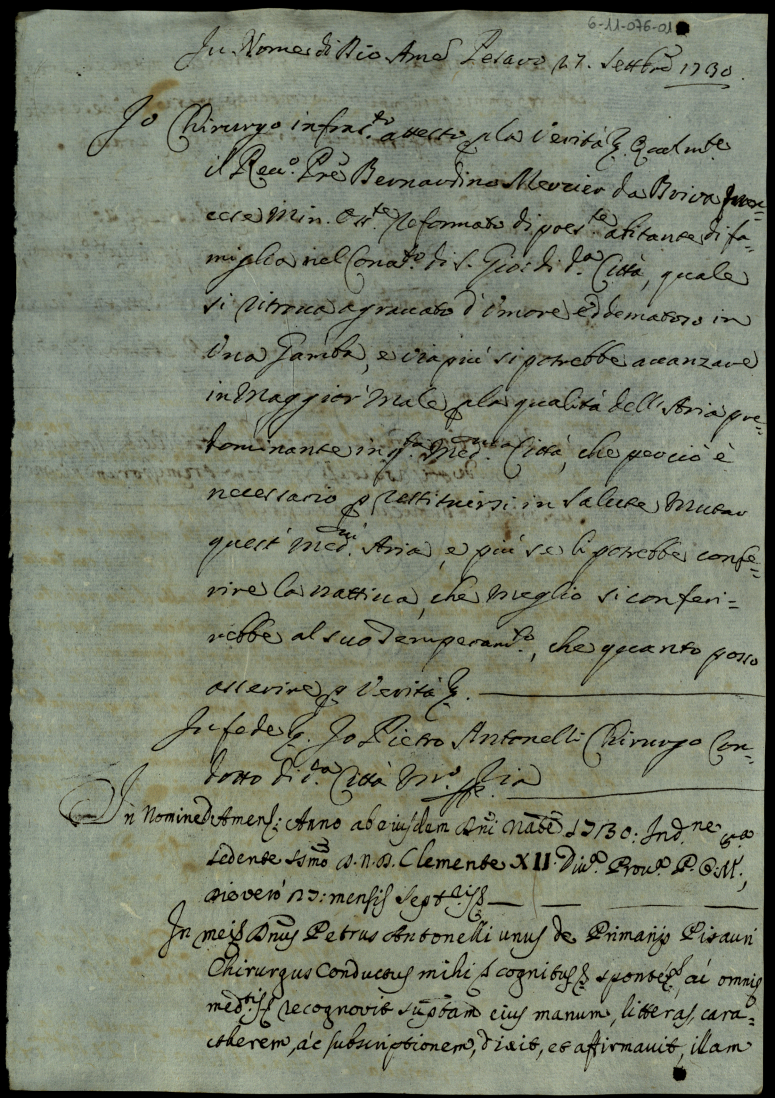 6-11-076-01
In Nome di Dio Amen Pesaro 27. Settbre 1730.
Io Chirurgo infrasto. attesto p la Verità &. Qualmte.
il Revo. Pre Bernardino Mercier da Briva
Min. Osste. Reformato di poste. abitante di fa=
miglia nel Convto. di S. Gio: di da. Città, quale
si ritrova agravato d'Umore eddematoso in
Una Gamba, e viapiù si potrebbe avanzare
in Maggior Male p la qualità dell'Aria pre=
dominante in qta. medma. Città, che perciò è
necessario p restituirsi in salute Mutar
quest' Medma. Aria, e più se li potrebbe confe=
rire la nattiva, che Meglio si conferi=
rebbe al suo Temperamto., che quanto posso
asserire p Verità &.
In fede &. Io Pietro Antonelli Chirurgo Con=
dotto di da. Città Mo. ppa
In Nomine D. Amen: Anno ab eiusdem Dni Nate 1730: Indne. 8a.
sedente Ssmo D. N. D. Clemente XII. Diva. Prova. P. O. M.,
die vero 27: mensis Septris
In meis Dnus Petrus Antonelli unus de Primarijs Pisauri
Chirurgus Conductus mihi cognitus & sponte &, ac omnis
medtis recognovit suptam eius manum, litteras, cara=
ctherem, ac subscriptionem, dixit, et affirmavit, illam